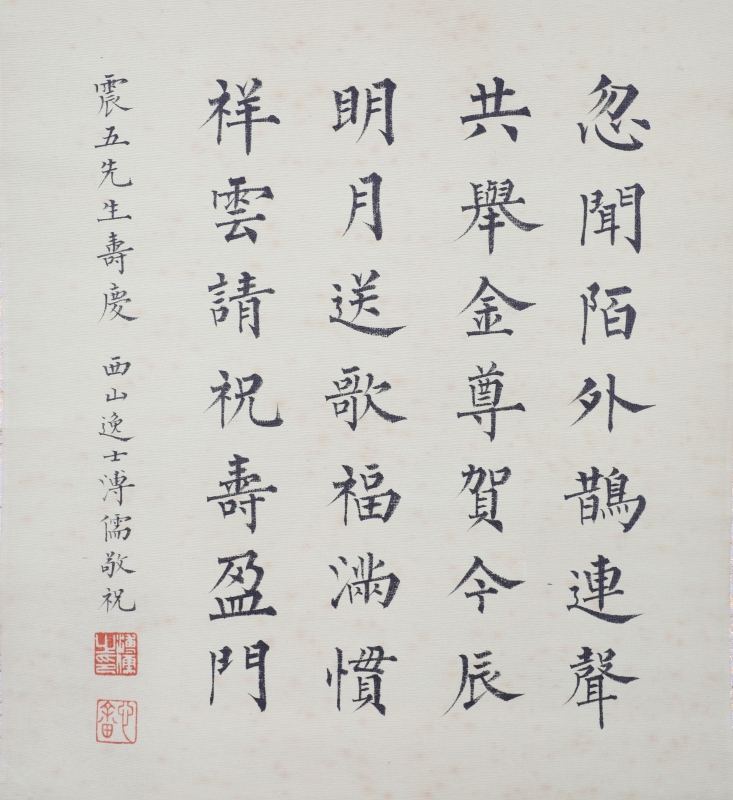 忽聞陌外鵲連聲
共舉金尊賀今辰
明月送歌福滿慣
祥雲請祝壽盈門
震五先生壽慶 西山逸士溥儒敬祝
溥儒之印
心畬